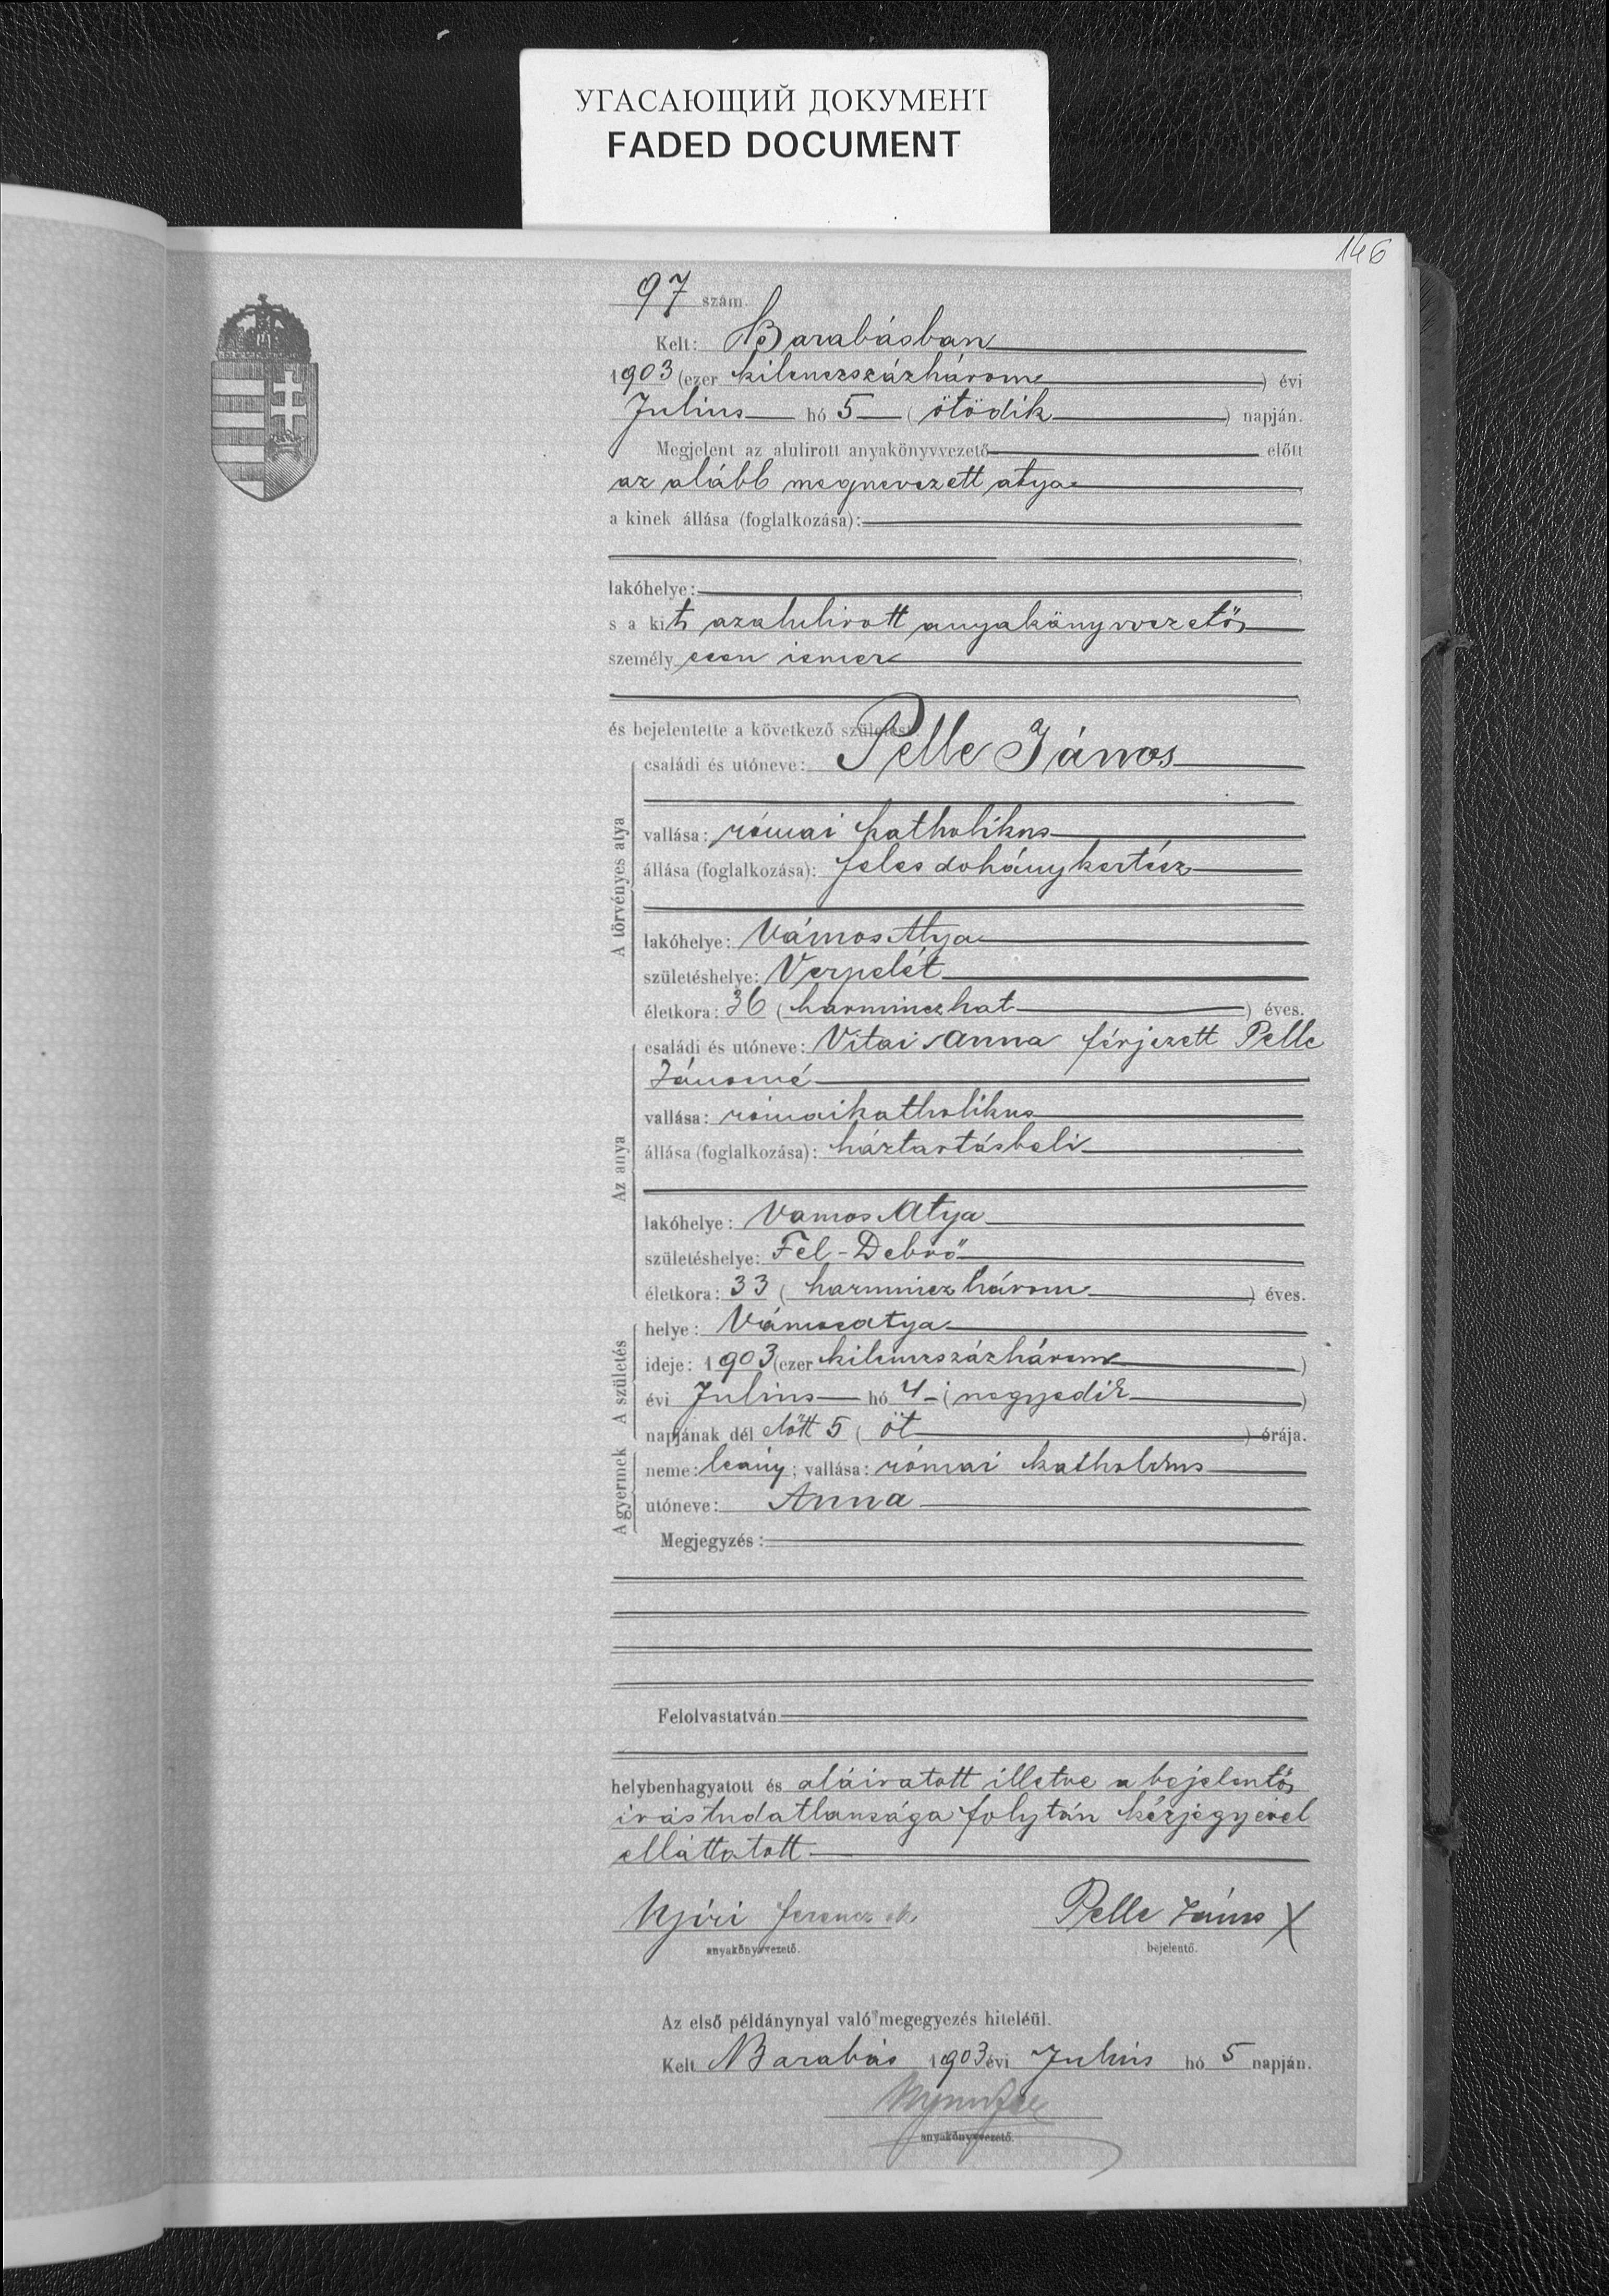 УГАСАЮЩИЙ ДОКУМЕНТ
FADED DOCUMENT
146
97 szám.
Kelt: Barabásban
1903 (ezer kilenczszázhárom ) évi
Julius hó 5 ( ötödik ) napján.
Megjelent az alulirott anyakönyvvezető előtt
az alább megnevezett atya
a kinek állása (foglalkozása):
lakóhelye:
s a kit az alulirott anyakönyvvezető
személyesen ismer
és bejelentette a következő születést:
A törvényes atya
családi és utóneve: Pelle János
vallása: római katholikus
állása (foglalkozása): feles dohánykertész
lakóhelye: Vámos Atya
születéshelye: Verpelét
életkora: 36 ( harminczhat ) éves.
Az anya
családi és utóneve: Vitai Anna férjezett Pelle
Jánosné
vallása: római katholikus
állása (foglalkozása): háztartásbeli
lakóhelye: Vamos Atya
születéshelye: Fel-Debrő
életkora: 33 ( harminczhárom ) éves.
A születés
helye: Vámosatya
ideje: 1903 (ezer kilenczszázhárom )
évi Julius hó 4 ( negyedik )
napjának dél előtt 5 ( öt ) órája.
A gyermek
neme: leány; vallása: római katholikus
utóneve: Anna
Megjegyzés:
Felolvastatván
helybenhagyatott és aláiratott illetve a bejelentő
irástudatlansága folytán kézjegyével
elláttatott
Nyiri Ferencz Pelle János X
anyakönyvvezető. bejelentő.
Az első példánynyal való megegyezés hiteléül.
Kelt Barabás 1903 évi Julius hó 5 napján.
anyakönyvvezető.